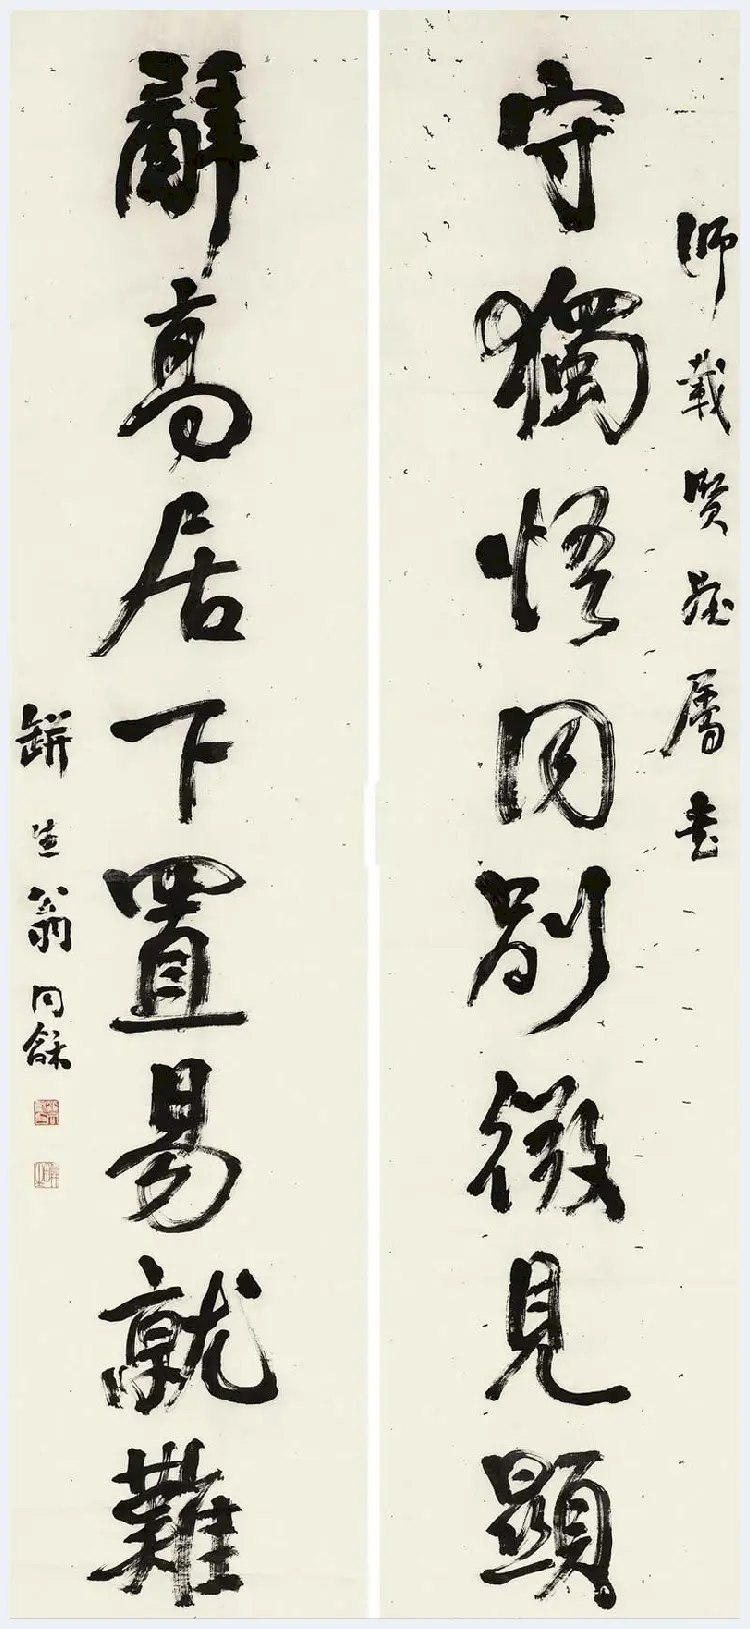 師載賢姪屬書
守獨悟同別微見顯
辭高居下置易就難
缾生翁同龢